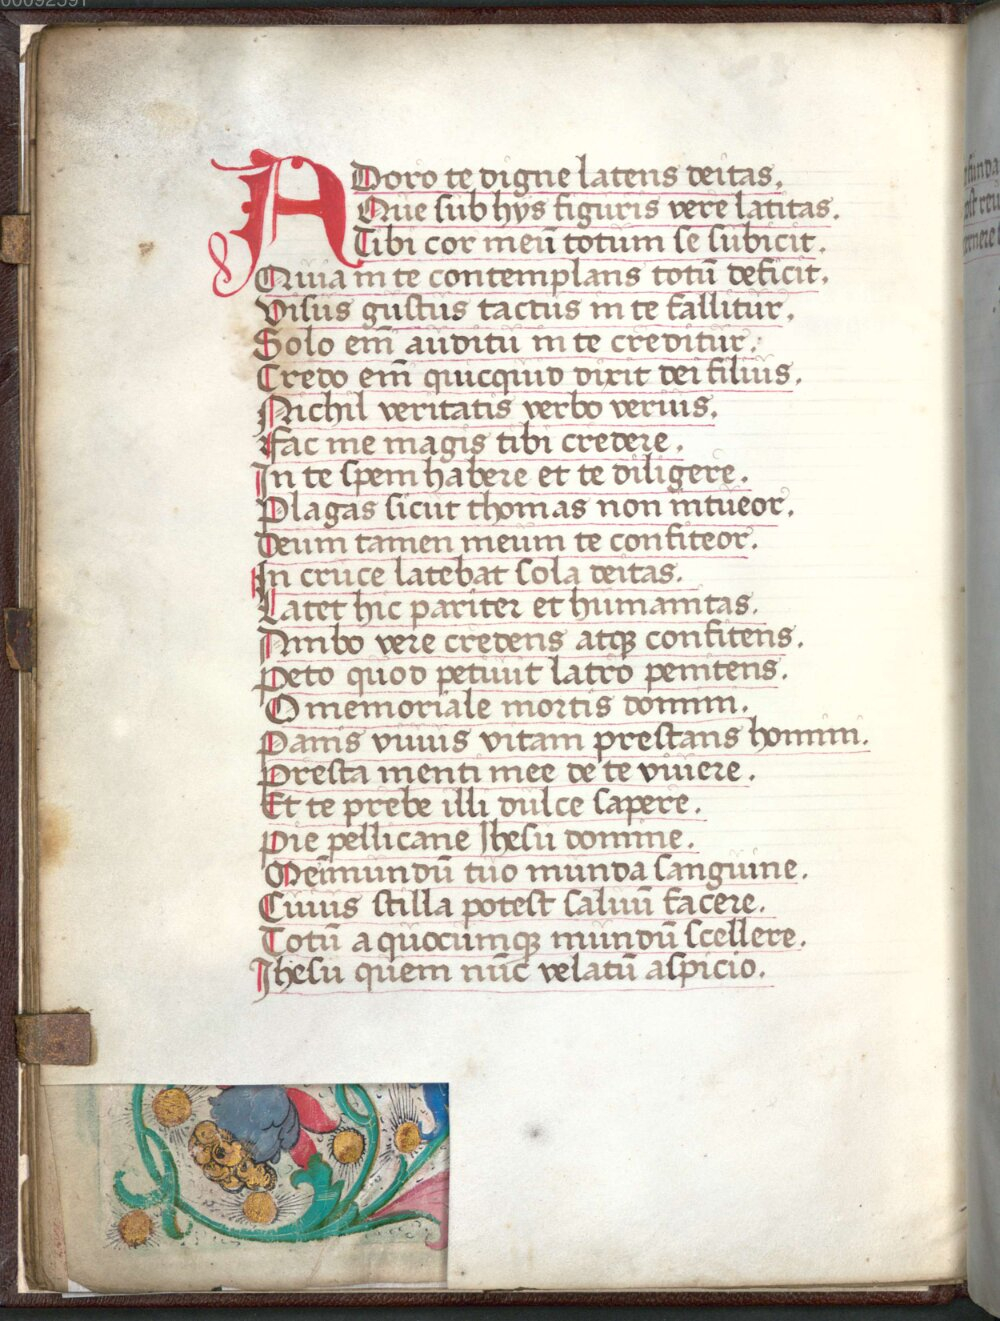 00092591
Adoro te digne latens deitas.
Que sub hys figuris vere latitas.
Tibi cor meū totum se subicit.
Quia in te contemplans totū deficit.
Visus gustus tactus in te fallitur.
Solo em̄ auditu in te creditur.
Credo em̄ quicquid dixit dei filius.
Nichil veritatis verbo verius.
Fac me magis tibi credere.
In te spem habere et te diligere.
Plagas sicut thomas non intueor.
Deum tamen meum te confiteor.
In cruce latebat sola deitas.
Latet hic pariter et humanitas.
Ambo vere credens atqꝫ confitens.
Peto quod petiuit latro penitens.
O memoriale mortis domini.
Panis viuus vitam prestans homini.
Presta menti mee de te viuere.
Et te prebe illi dulce sapere.
Pie pellicane Jhesu domine.
Me īmundū tuo munda sanguine.
Cuius stilla potest saluū facere.
Totū a quocumqꝫ mundū scellere.
Jhesu quem nūc velatū aspicio.